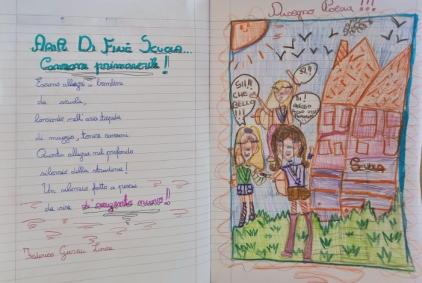 Aria Di Fine Scuola...
Canzone primaverile!!
Escono allegri i bambini
da scuola,
lanciando nell'aria tiepida
di maggio, tenere canzoni.
Quanta allegria nel profondo
silenzio della stradina!
Un silenzio fatto a pezzi
da risa d'argento nuovo!!
Federico Garcia Lorca
Disegno Poesia!!!
SIII
CHE
BELLO
!!!
SI!!
SI!
Scuola